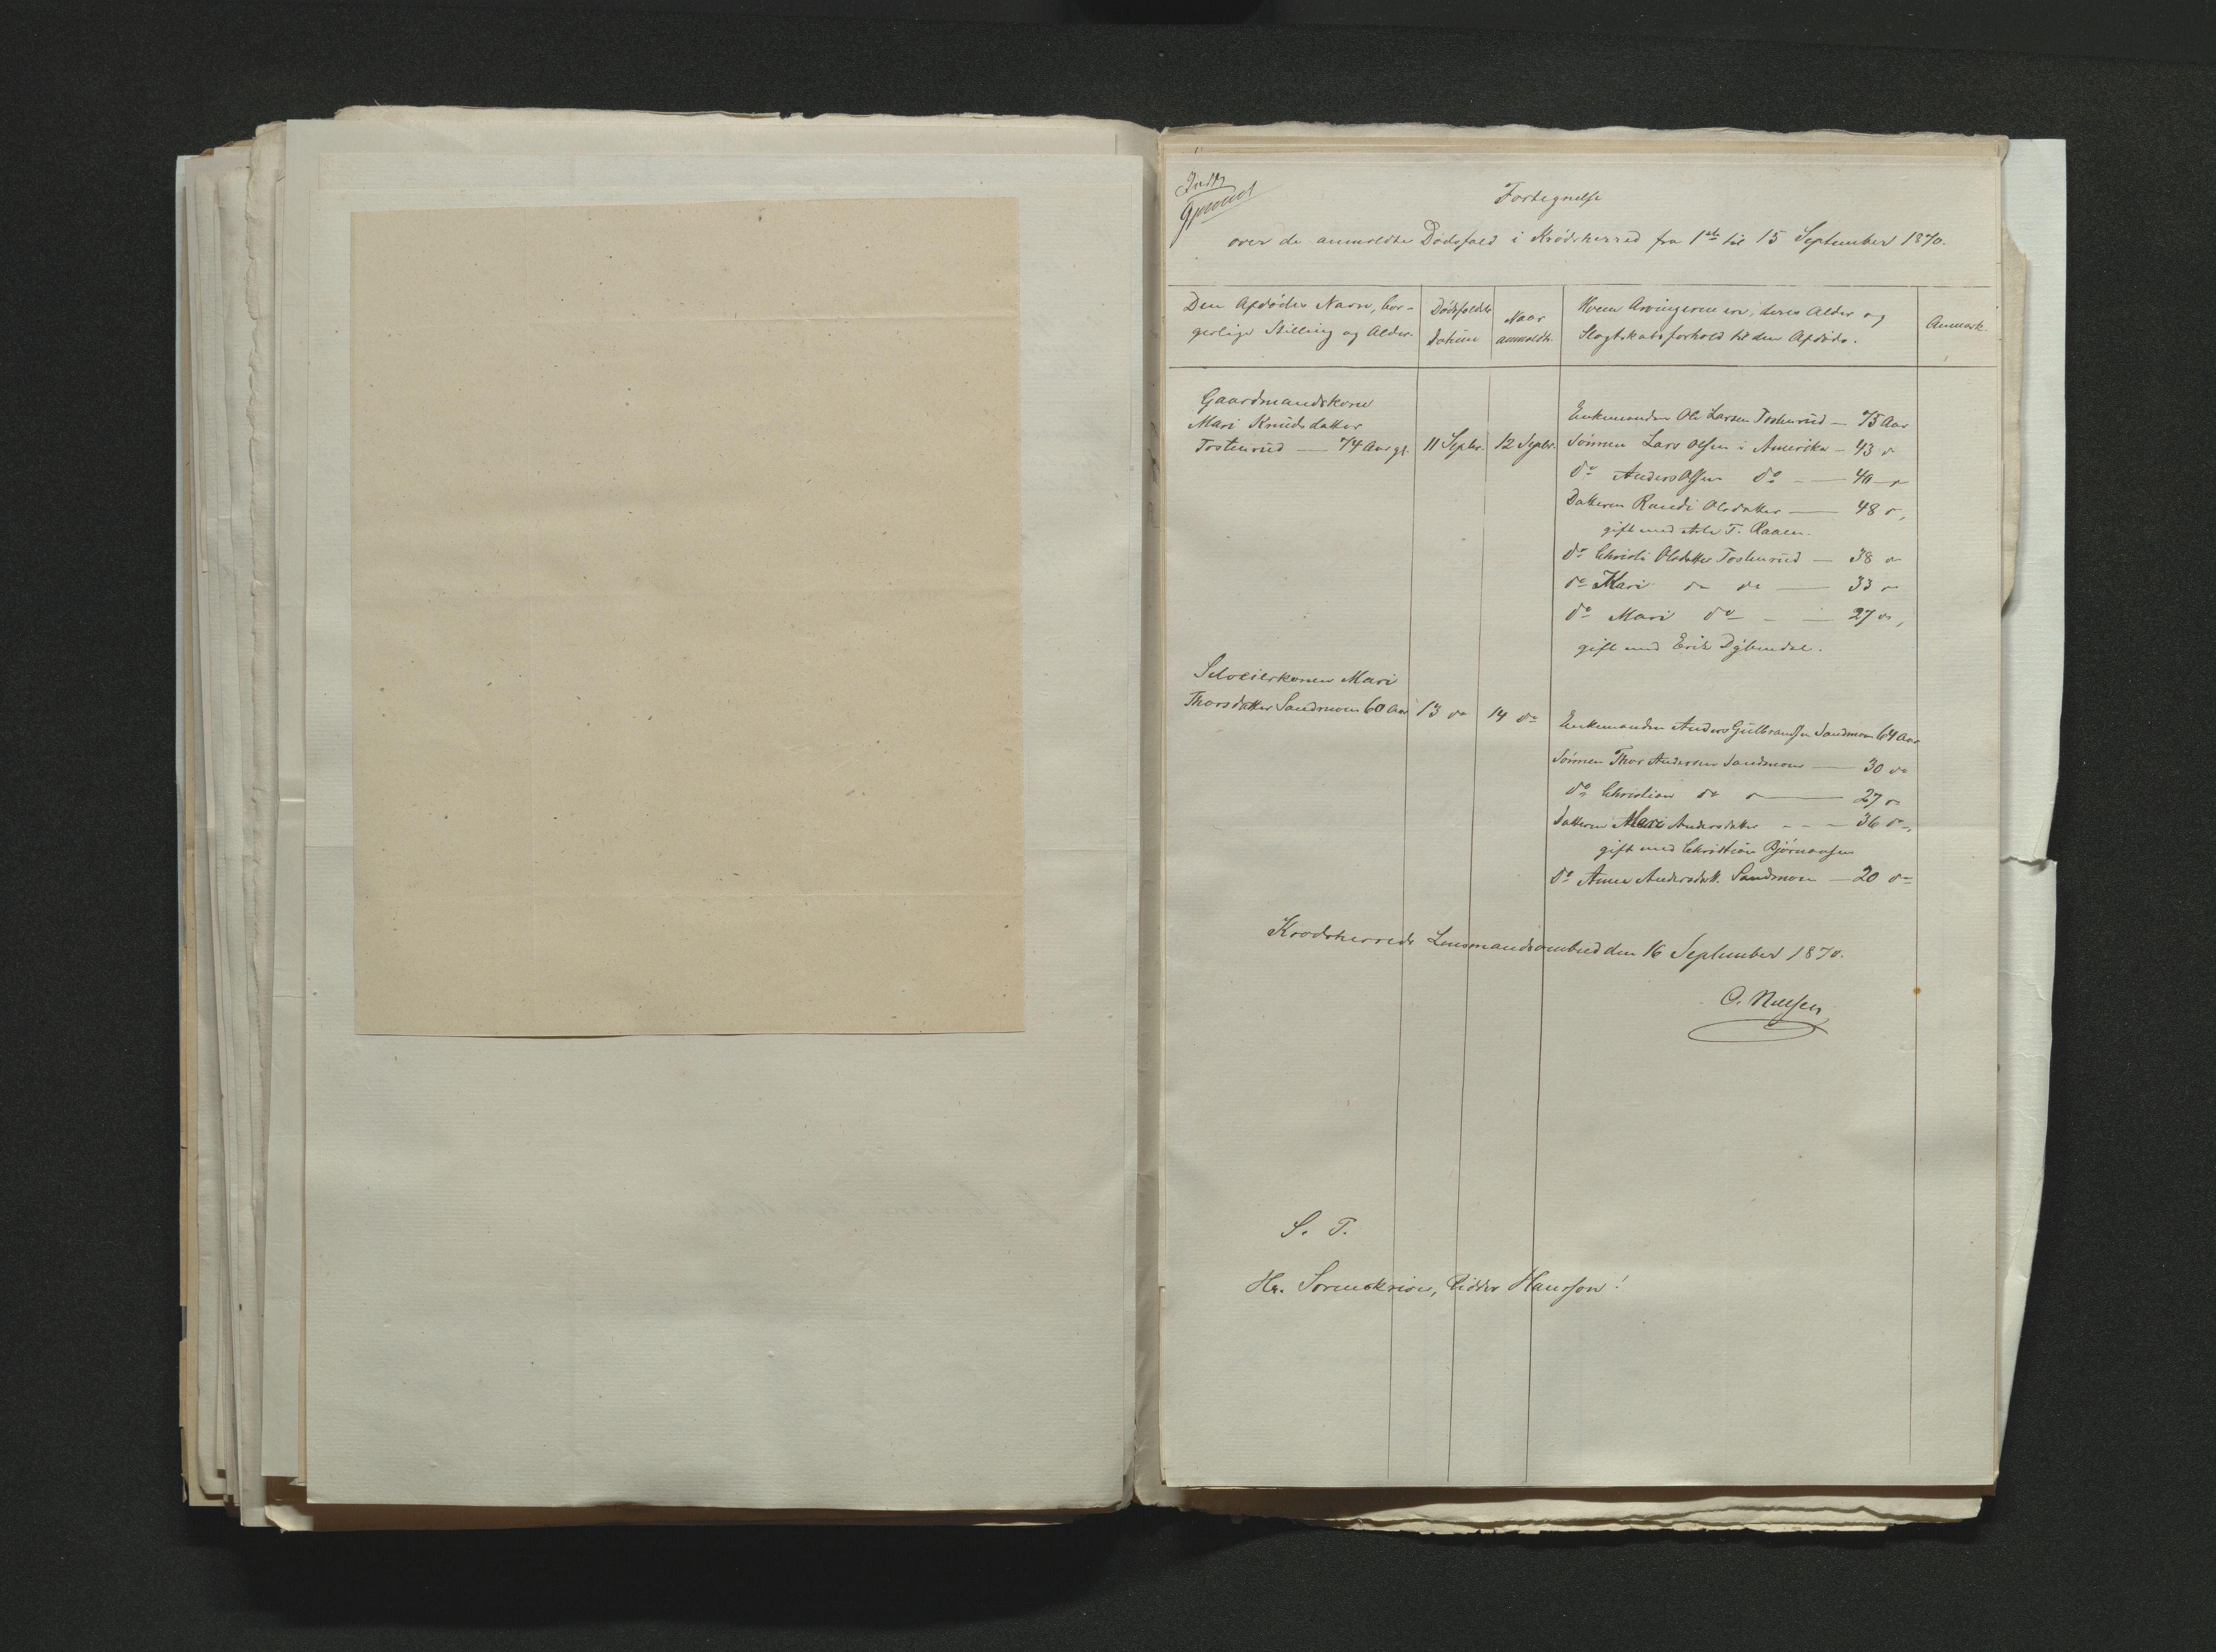 Indf.
Fortegnelse
over de anmeldte Dødsfald i Krødsherred fra 1ste til 15 September 1870.
Den Afdødes Navn, bor-
gerlige Stilling og Alder.
Dødsfaldets
Datum
Naar
anmeldt.
Hvem Arvingerne ere, deres Alder og
Slægtskabsforhold til den Afdøde.
Anmærk.
Gaardmandskone
Mari Knudsdatter
Tostenrud — 74 Aar gl.
11 Septbr.
12 Septbr.
Enkemanden Ole Larsen Tostenrud — 75 Aar
Sønnen Lars Olsen i Amerika — 43 do
do Anders Olsen do — 40 do
Datteren Randi Olsdatter — 48 do,
gift med T. Raaen.
do Christi Olsdatter Tostenrud — 38 do
do Kari do do — 33 do
do Mari do — 27 do,
gift med Erik
Selveierkonen Mari
Thorsdatter Sandmoen 60 Aar
13 do
14 do
Enkemanden Anders Gulbrandsen Sandmoen 64 Aar
Sønnen Thor Andersen Sandmoen — 30 do
do Christian do do — 27 do
Datteren Andersdatter — 36 do,
gift med Christian Bjørnausen
do Anne Andersdatt. Sandmoen — 20 do
Krødsherreds Lensmandsombud den 16 September 1870.
O. Nilsen
S. T.
Hr. Sorenskriver, Ridder Hansson!